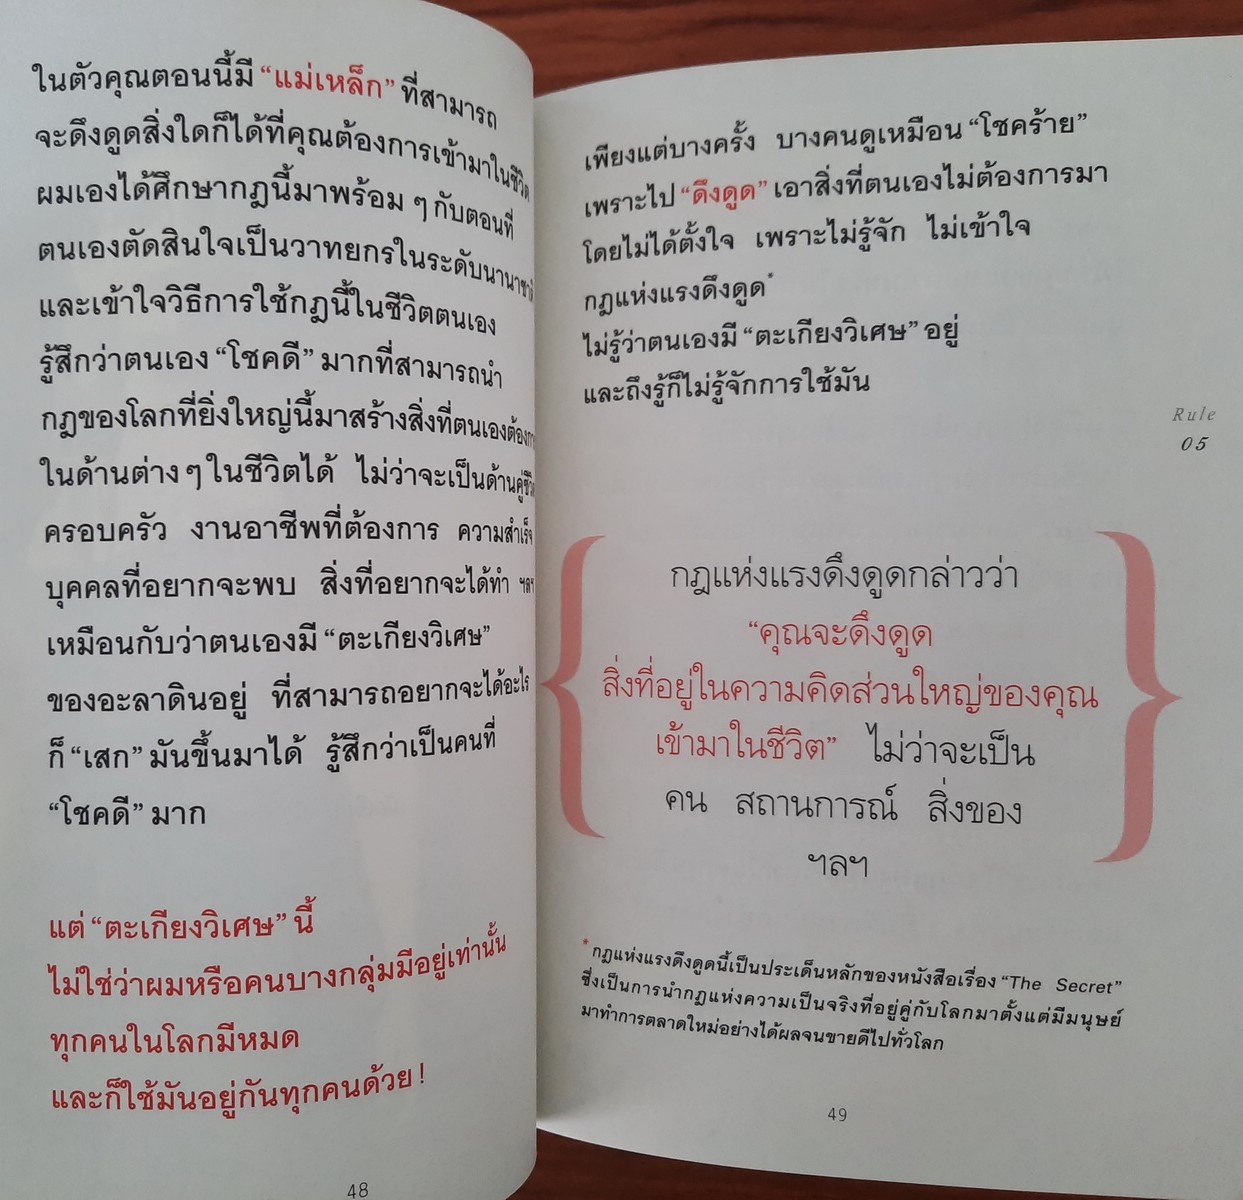 ในตัวคุณตอนนี้มี “แม่เหล็ก” ที่สามารถ
จะดึงดูดสิ่งใดก็ได้ที่คุณต้องการเข้ามาในชีวิต
ผมเองได้ศึกษากฎนี้มาพร้อม ๆ กับตอนที่
ตนเองตัดสินใจเป็นวาทยกรในระดับนานาชาติ
และเข้าใจวิธีการใช้กฎนี้ในชีวิตตนเอง
รู้สึกว่าตนเอง “โชคดี” มากที่สามารถนำ
กฎของโลกที่ยิ่งใหญ่นี้มาสร้างสิ่งที่ตนเองต้องการ
ในด้านต่าง ๆ ในชีวิตได้ ไม่ว่าจะเป็นด้านคู่ชีวิต
ครอบครัว งานอาชีพที่ต้องการ ความสำเร็จ
บุคคลที่อยากจะพบ สิ่งที่อยากจะได้ทำ ฯลฯ
เหมือนกับว่าตนเองมี “ตะเกียงวิเศษ”
ของอะลาดินอยู่ ที่สามารถอยากจะได้อะไร
ก็ “เสก” มันขึ้นมาได้ รู้สึกว่าเป็นคนที่
“โชคดี” มาก
แต่ “ตะเกียงวิเศษ” นี้
ไม่ใช่ว่าผมหรือคนบางกลุ่มมีอยู่เท่านั้น
ทุกคนในโลกมีหมด
และก็ใช้มันอยู่กันทุกคนด้วย!
48
เพียงแต่บางครั้ง บางคนดูเหมือน “โชคร้าย”
เพราะไป “ดึงดูด” เอาสิ่งที่ตนเองไม่ต้องการมา
โดยไม่ได้ตั้งใจ เพราะไม่รู้จัก ไม่เข้าใจ
กฎแห่งแรงดึงดูด*
ไม่รู้ว่าตนเองมี “ตะเกียงวิเศษ” อยู่
และถึงรู้ก็ไม่รู้จักการใช้มัน
Rule
05
กฎแห่งแรงดึงดูดกล่าวว่า
“คุณจะดึงดูด
สิ่งที่อยู่ในความคิดส่วนใหญ่ของคุณ
เข้ามาในชีวิต” ไม่ว่าจะเป็น
คน สถานการณ์ สิ่งของ
ฯลฯ
* กฎแห่งแรงดึงดูดนี้เป็นประเด็นหลักของหนังสือเรื่อง “The Secret”
ซึ่งเป็นการนำกฎแห่งความเป็นจริงที่อยู่คู่กับโลกมาตั้งแต่มีมนุษย์
มาทำการตลาดใหม่อย่างได้ผลจนขายดีไปทั่วโลก
49